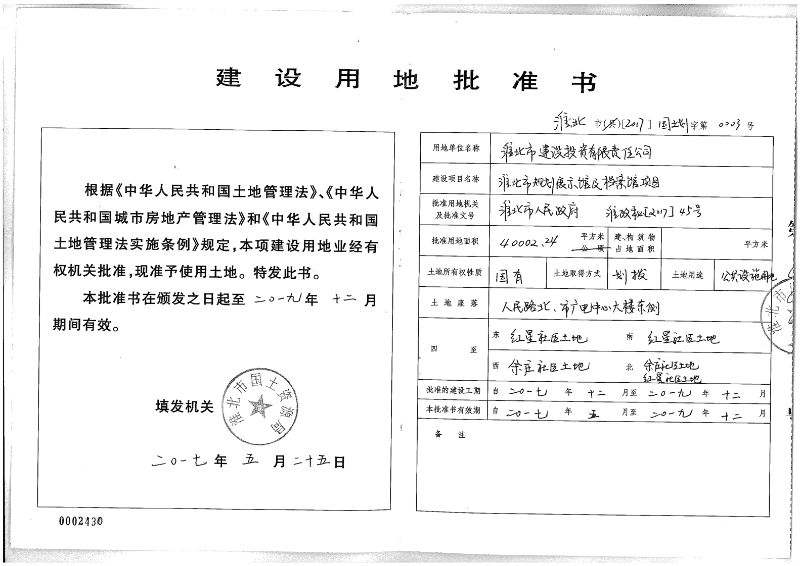 建设用地批准书
淮北 市(县)[2017] 国土划字第 0003号
根据《中华人民共和国土地管理法》、《中华人
民共和国城市房地产管理法》和《中华人民共和国
土地管理法实施条例》规定，本项建设用地业经有
权机关批准，现准予使用土地。特发此书。
本批准书在颁发之日起至二〇一九年 十二月
期间有效。
填发机关
淮北市国土资源局
二〇一七年 五 月二十五日
0002430
用地单位名称 淮北市建设投资有限责任公司
建设项目名称 淮北市规划展示馆及档案馆项目
批准用地机关及批准文号 淮北市人民政府 淮政秘[2017]45号
批准用地面积 40002.24 平方米 公顷 建、构筑物占地面积 平方米
土地所有权性质 国有 土地取得方式 划拨 土地用途 公共设施用地
土地座落 人民路北、市广电中心大楼东侧
四至 东 红星社区土地 南 红星社区土地
西 余庄社区土地 北 余庄社区土地
红星社区土地
批准的建设工期 自 二〇一七 年 十二 月至 二〇一九 年 十二 月
本批准书有效期 自 二〇一七 年 五 月至 二〇一九 年 十二 月
备注
淮北市